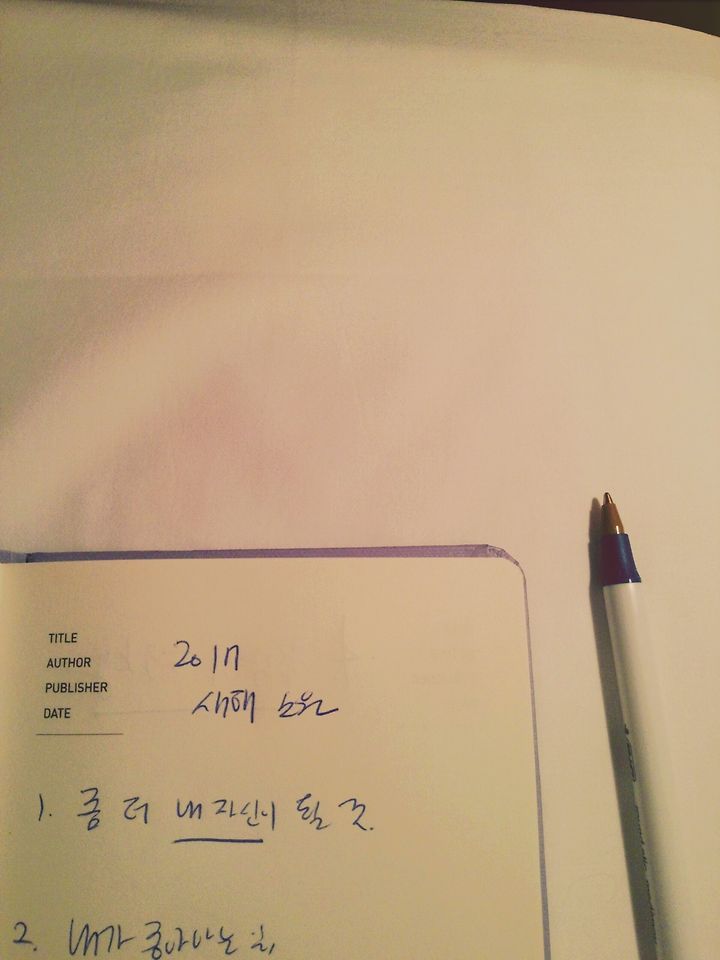 TITLE
AUTHOR
PUBLISHER
DATE
2017
새해 소원
1. 좀 더 내 자신이 될 것.
2. 내가 좋아하는 일,